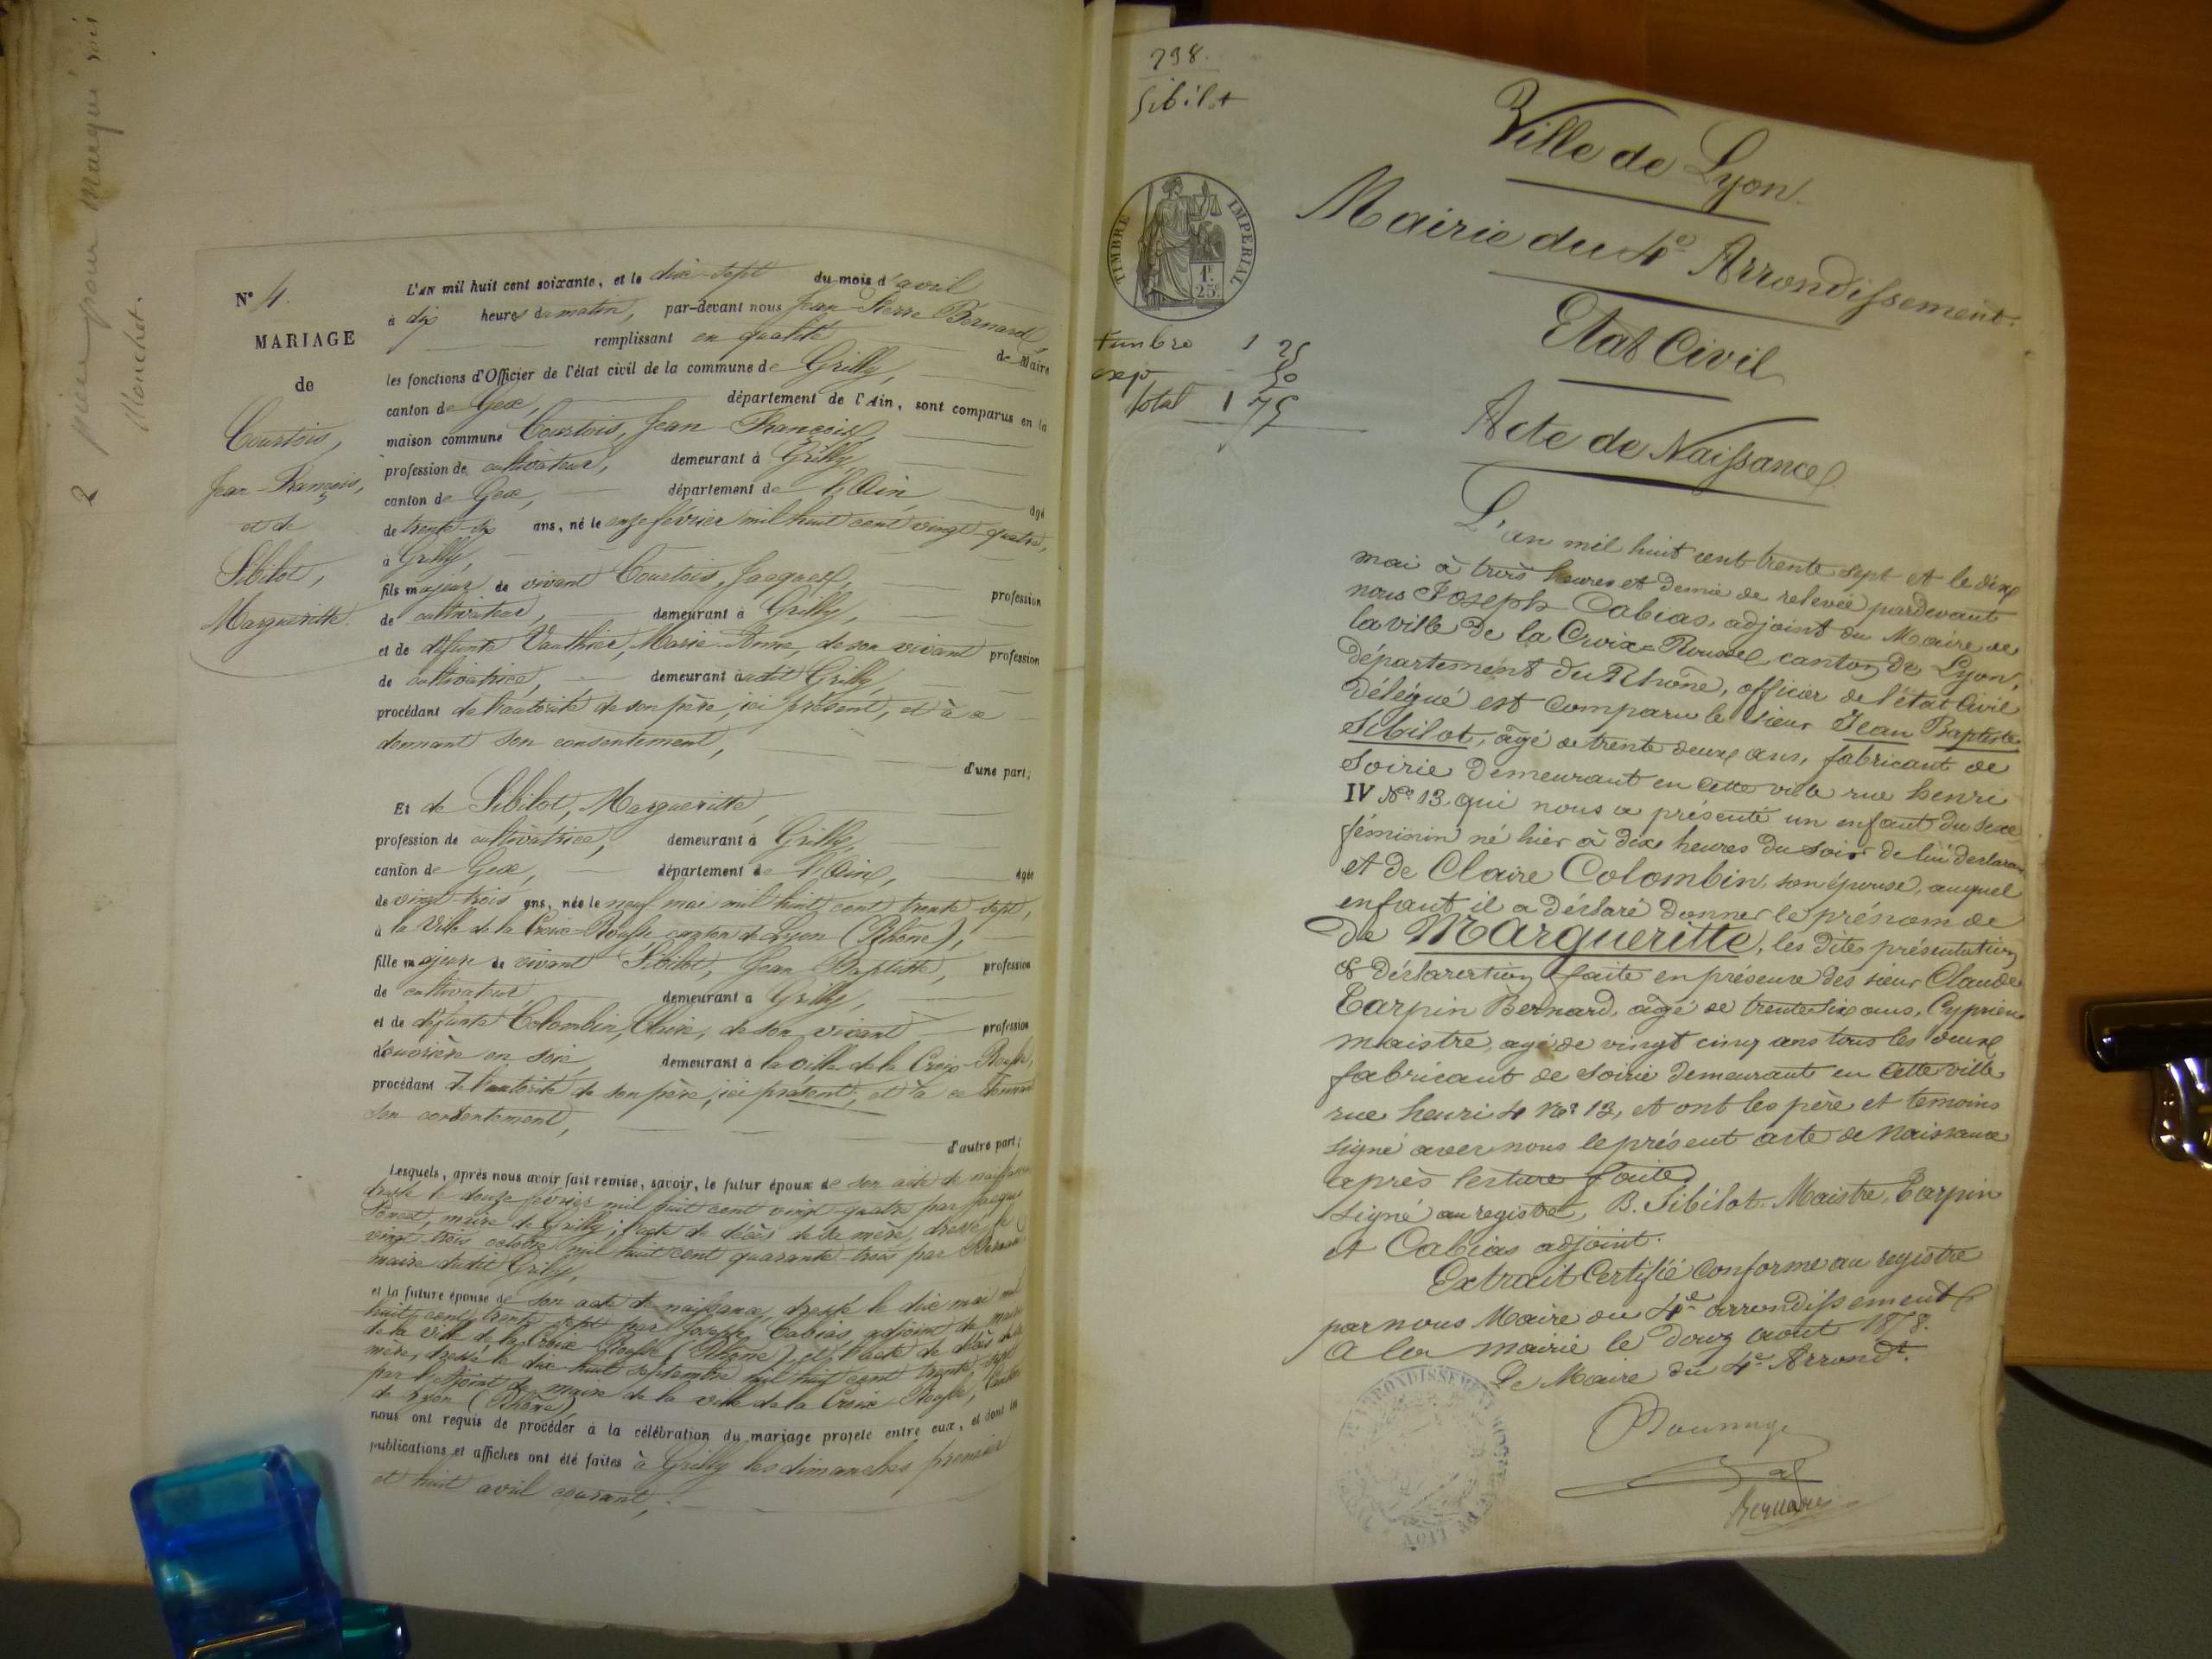 2 pièces pour
Manchet.
N° 4.
MARIAGE
de
Courtois,
Jean-François,
et de
Sibilot,
Margueritte.
L'AN mil huit cent soixante, et le dix-sept du mois d'avril
à dix heures du matin, par-devant nous Jean-Pierre Bernard,
remplissant en qualité de Maire
les fonctions d'Officier de l'état civil de la commune de Grilly,
canton de Gex, département de l'Ain, sont comparus en la
maison commune Courtois, Jean-François,
profession de cultivateur, demeurant à Grilly,
canton de Gex, département de l'Ain, âgé
de trente-six ans, né le onze février mil huit cent vingt-quatre,
à Grilly,
fils majeur de vivant Courtois, Jacques, profession
de cultivateur, demeurant à Grilly,
et de défunte Vauthier, Marie-Anne, de son vivant profession
de cultivatrice, demeurant audit Grilly,
procédant de l'autorité de son père, ici présent, et à ce
donnant son consentement,
d'une part;
Et de Sibilot, Margueritte,
profession de cultivatrice, demeurant à Grilly,
canton de Gex, département de l'Ain, âgée
de vingt-trois ans, née le neuf mai mil huit cent trente-sept,
à la Ville de la Croix-Rousse canton de Lyon (Rhône),
fille majeure de vivant Sibilot, Jean-Baptiste, profession
de cultivateur demeurant à Grilly,
et de défunte Colombin, Claire, de son vivant profession
d'ouvrière en soie, demeurant à la ville de la Croix-Rousse,
procédant de l'autorité de son père, ici présent, et à ce donnant
son consentement,
d'autre part;
Lesquels, après nous avoir fait remise, savoir, le futur époux de son acte de naissance
dressé le douze février mil huit cent vingt-quatre par Jacques
maire de Grilly; l'acte de décès de sa mère, dressé le
vingt-trois octobre mil huit cent quarante-trois par Bernard
maire dudit Grilly,
et la future épouse de son acte de naissance, dressé le dix mai mil
huit cent trente-sept par Joseph Cabias, adjoint du maire
de la ville de la Croix-Rousse (Rhône), et l'acte de décès de sa
mère, dressé le dix-huit septembre mil huit cent trente-sept
par l'adjoint du maire de la ville de la Croix-Rousse, canton
de Lyon (Rhône)
nous ont requis de procéder à la célébration du mariage projeté entre eux, et dont les
publications et affiches ont été faites à Grilly les dimanches premier
et huit avril courant;
798.
Sibilot
TIMBRE IMPERIAL
1F.
25c.
timbre 1 25
exp 50
Total 1 75
Ville de Lyon
Mairie du 4e Arrondissement.
Etat Civil
Acte de Naissance
L'an mil huit cent trente sept et le dix
mai à trois heures et demie de relevée pardevant
nous Joseph Cabias, adjoint du Maire de
la ville de la Croix-Rousse canton de Lyon,
département du Rhône, officier de l'état Civil
délégué est comparu le sieur Jean Baptiste
Sibilot, âgé de trente deux ans, fabricant de
soirie demeurant en cette ville rue henri
IV No. 13 qui nous a présenté un enfant du sexe
féminin né hier à dix heures du soir de lui déclarant
et de Claire Colombin, son épouse, auquel
enfant il a déclaré donner le prénom de
de Margueritte, les dites présentation
& déclaration faite en présence des sieur Claude
Carpin Bernard, agé de trente six ans, Cyprien
Maistre, agé de vingt cinq ans tous les deux
fabricant de soirie demeurant en cette ville
rue henri 4 No. 13, et ont les père et temoins
signé avec nous le présent acte de Naissance
après lecture faite.
Signé au registre, B. Sibilot Maistre, Carpin
et Cabias adjoint.
Extrait Certifié conforme au registre
par nous Maire du 4e arrondissement
A la mairie le août
Le Maire du 4e Arrondt.
Bernard